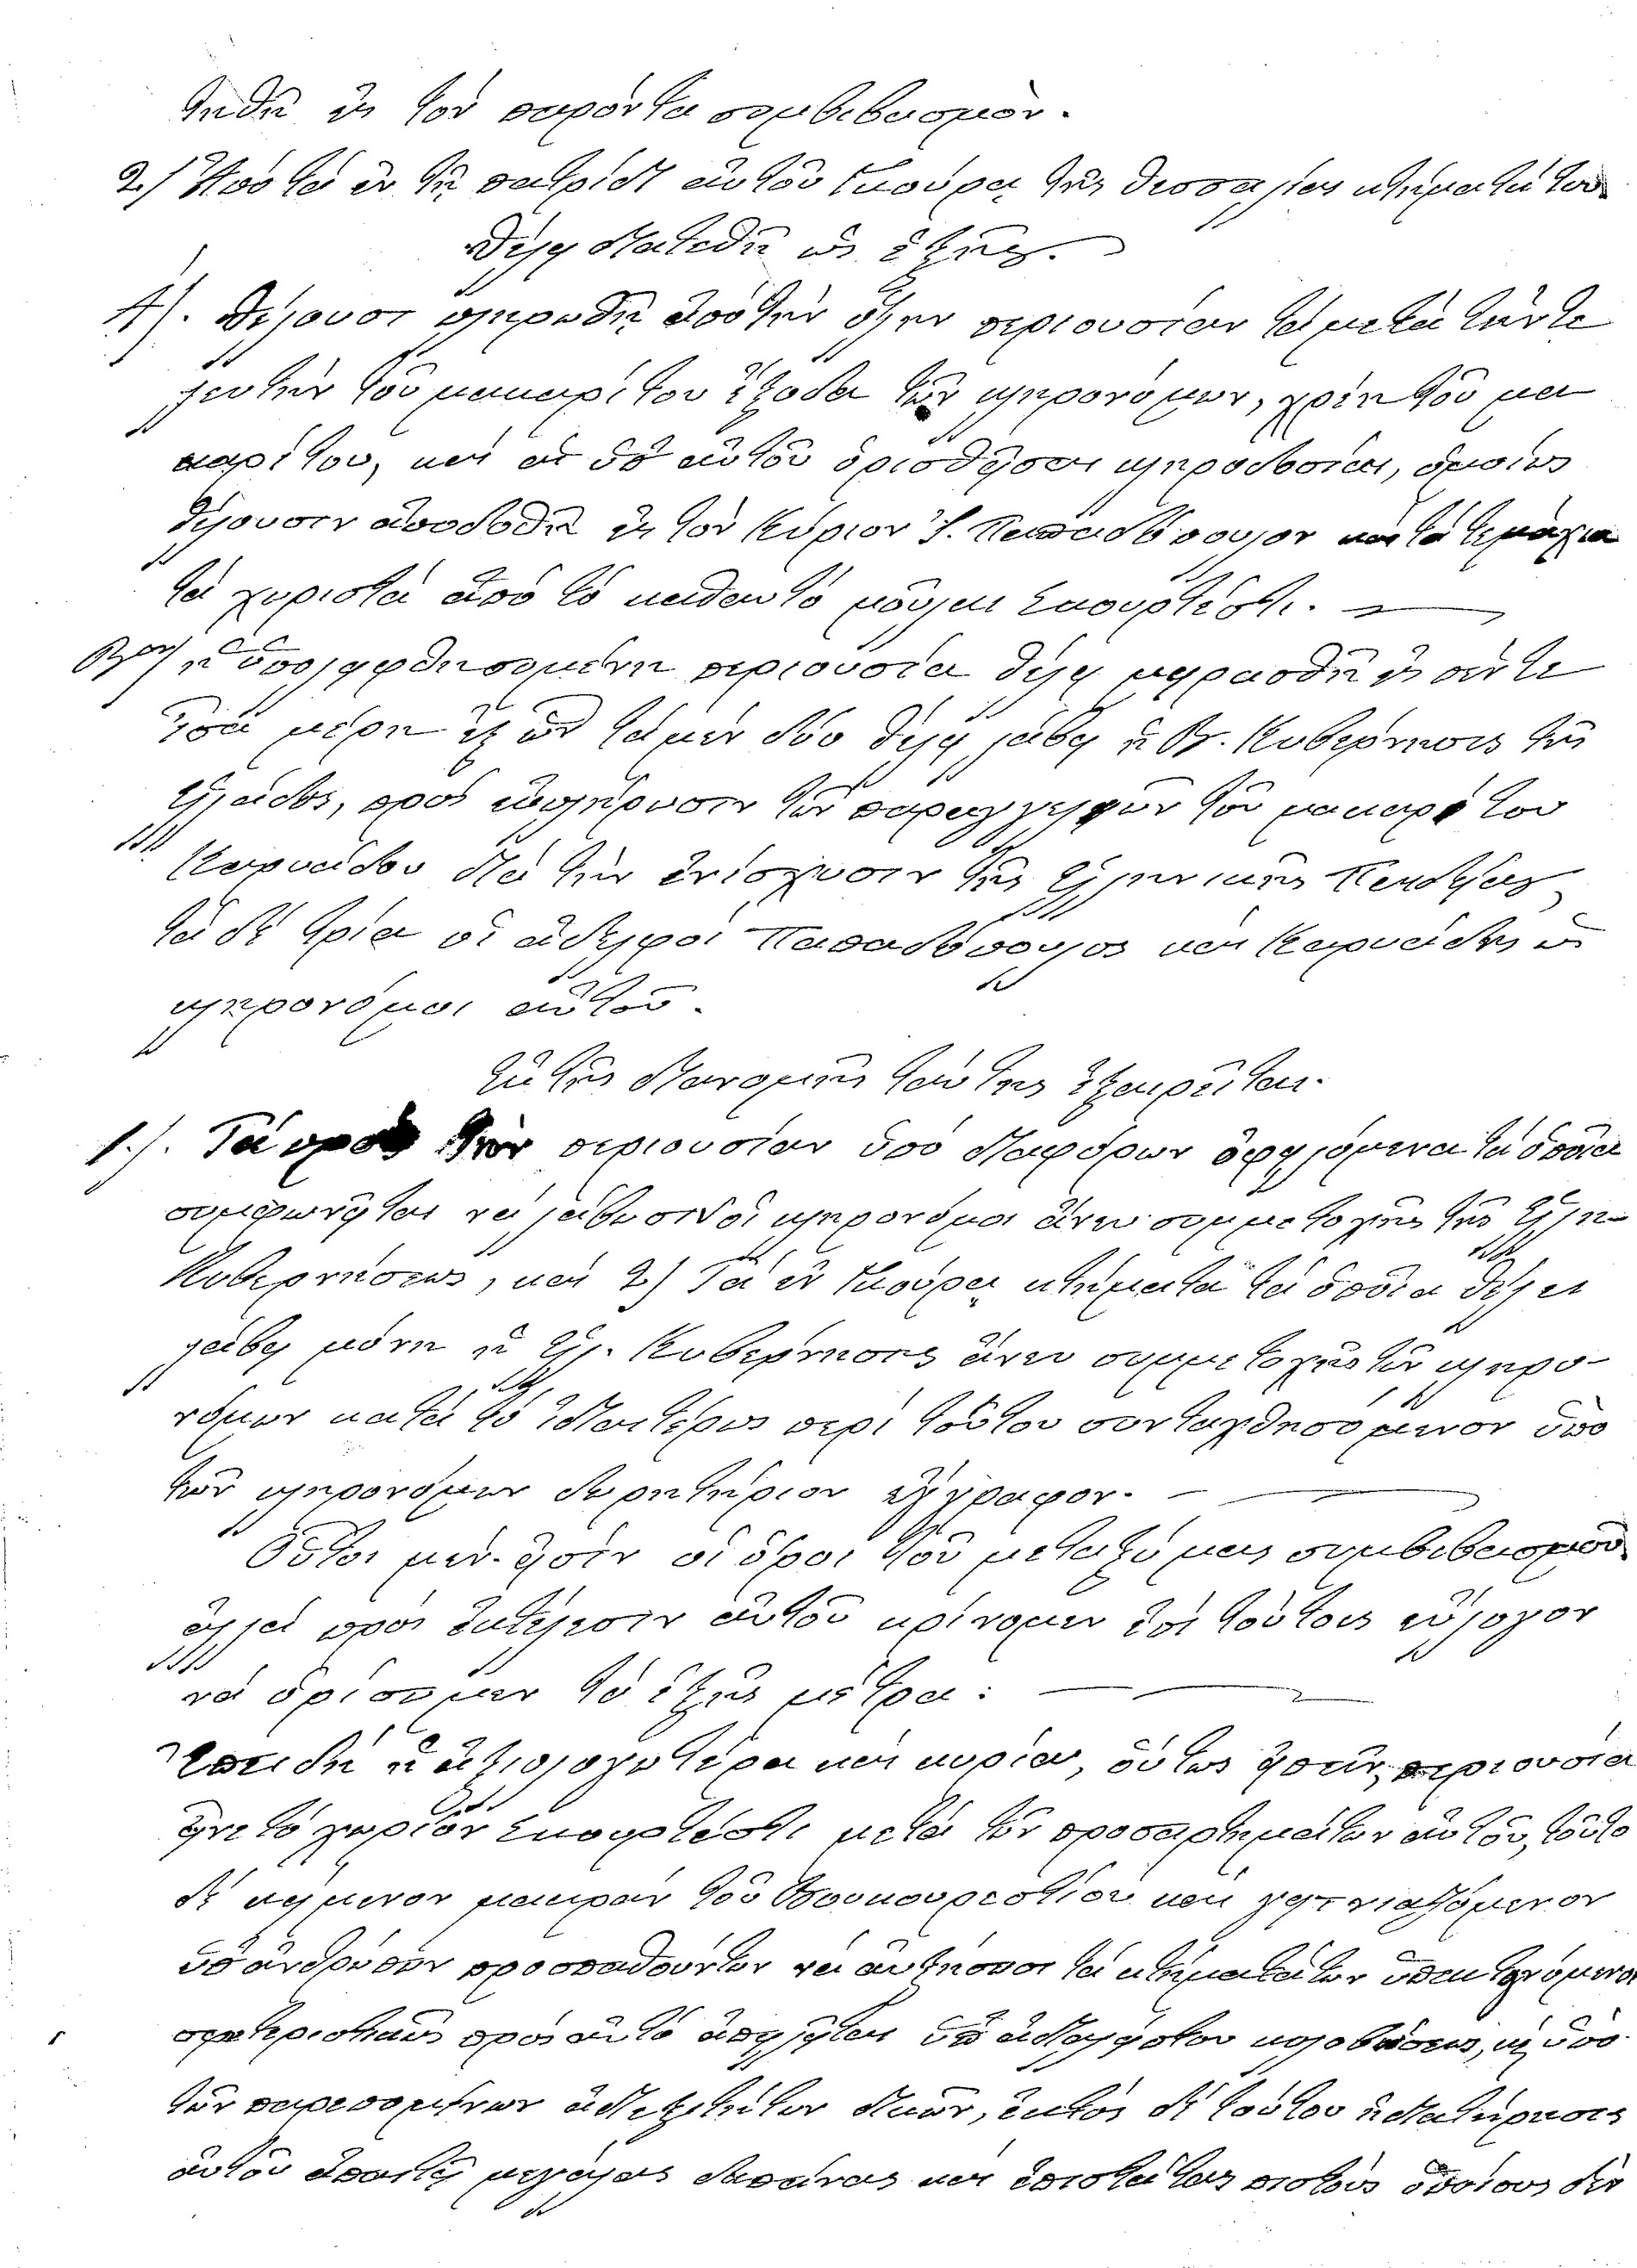 τηθῇ εἰς τὸν παρόντα συμβιβασμόν.
2.) Ἀπὸ τὰ ἐν τῇ πατρίδι αὐτοῦ τῆς Θεσσαλίας κτήματά του
θέλῃ διατεθῇ ὡς ἑξῆς.
Α). Θέλουσι πληρωθῇ ἀπὸ τὴν ὅλην περιουσίαν τὰ μετὰ τὴν τε
λευτὴν τοῦ μακαρίτου ἔξοδα τῶν κληρονόμων, χρέη τοῦ μα
καρίτου, καὶ αἱ ὑπ' αὐτοῦ ὁρισθεῖσαι κληροδοσίαι, ὁμοίως
θέλουσιν ἀποδοθῇ εἰς τὸν Κύριον Ἰ. Παπαδόπουλον καὶ τὰ τεμάχια
τὰ χωριστὰ ἀπὸ τὸ καθαυτὸ Σκουρτέστι.
Βον) ἡ ὑπολειφθησομένη περιουσία θέλῃ μερασθῇ εἰς πέντε
ἴσα μέρη ἐξ ὧν τὰ μὲν δύο θέλῃ λάβῃ ἡ Β. Κυβέρνησις τῆς
Ἑλλάδος, πρὸς ἐκπλήρωσιν τῶν παραγγελιῶν τοῦ μακαρίτου
διὰ τὴν ἐνίσχυσιν τῆς Ἑλληνικῆς Παιδείας
τὰ δὲ τρία οἱ ἀδελφοὶ Παπαδόπουλος καὶ ὡς
κληρονόμοι αὐτοῦ.
Ἐκ τῆς διανομῆς ταύτης ἐξαιρεῖται.
1.). Τὰ πρὸς τὴν περιουσίαν ὑπὸ διαφόρων ὀφειλόμενα τὰ ὁποῖα
συμφωνεῖται νὰ λάβωσιν οἱ κληρονόμοι ἄνευ συμμετοχῆς τῆς Ἑλλη-
Κυβερνήσεως, καὶ 2) Τὰ ἐν κτήματα τὰ ὁποῖα θέλει
λάβῃ μόνη ἡ Ἑλλ. Κυβέρνησις ἄνευ συμμετοχῆς τῶν κληρο-
νόμων κατὰ τὸ ἰδιαιτέρως περὶ τούτου συνταχθησόμενον ὑπὸ
τῶν κληρονόμων δωρητήριον ἔγγραφον.
Οὗτοι μὲν εἰσὶν οἱ ὅροι τοῦ μεταξύ μας συμβιβασμοῦ
ἀλλὰ πρὸς ἐκτέλεσιν αὐτοῦ κρίνομεν ἐπὶ τούτοις εὔλογον
νὰ ὁρίσωμεν τὰ ἑξῆς μέτρα:
Ἐπειδὴ ἡ ἀξιολογωτέρα καὶ κυρία, οὕτως εἰπεῖν, περιουσία
εἶνε τὸ χωρίον Σκουρτέστι μετὰ τῶν προσαρτημάτων αὐτοῦ, τοῦτο
δὲ κείμενον μακρὰν τοῦ Βουκουρεστίου καὶ γειτνιαζόμενον
ὑπ' ἀνθρώπων προσπαθούντων νὰ αὐξήσωσι τὰ κτήματά των
σφετεριστικῶς πρὸς αὐτὸ ἀπειλεῖται ὑπ' ἀδιαλείπτου κολοβώσεως, ὡς ὑπὸ
τῶν παρεπομένων ἀδιεξητήτων δικῶν, ἐκτὸς δὲ τούτου ἡ διατήρησις
αὐτοῦ ἀπαιτεῖ μεγάλας δαπάνας καὶ ἐπιστάτας πιστοὺς ὁποίους δὲν